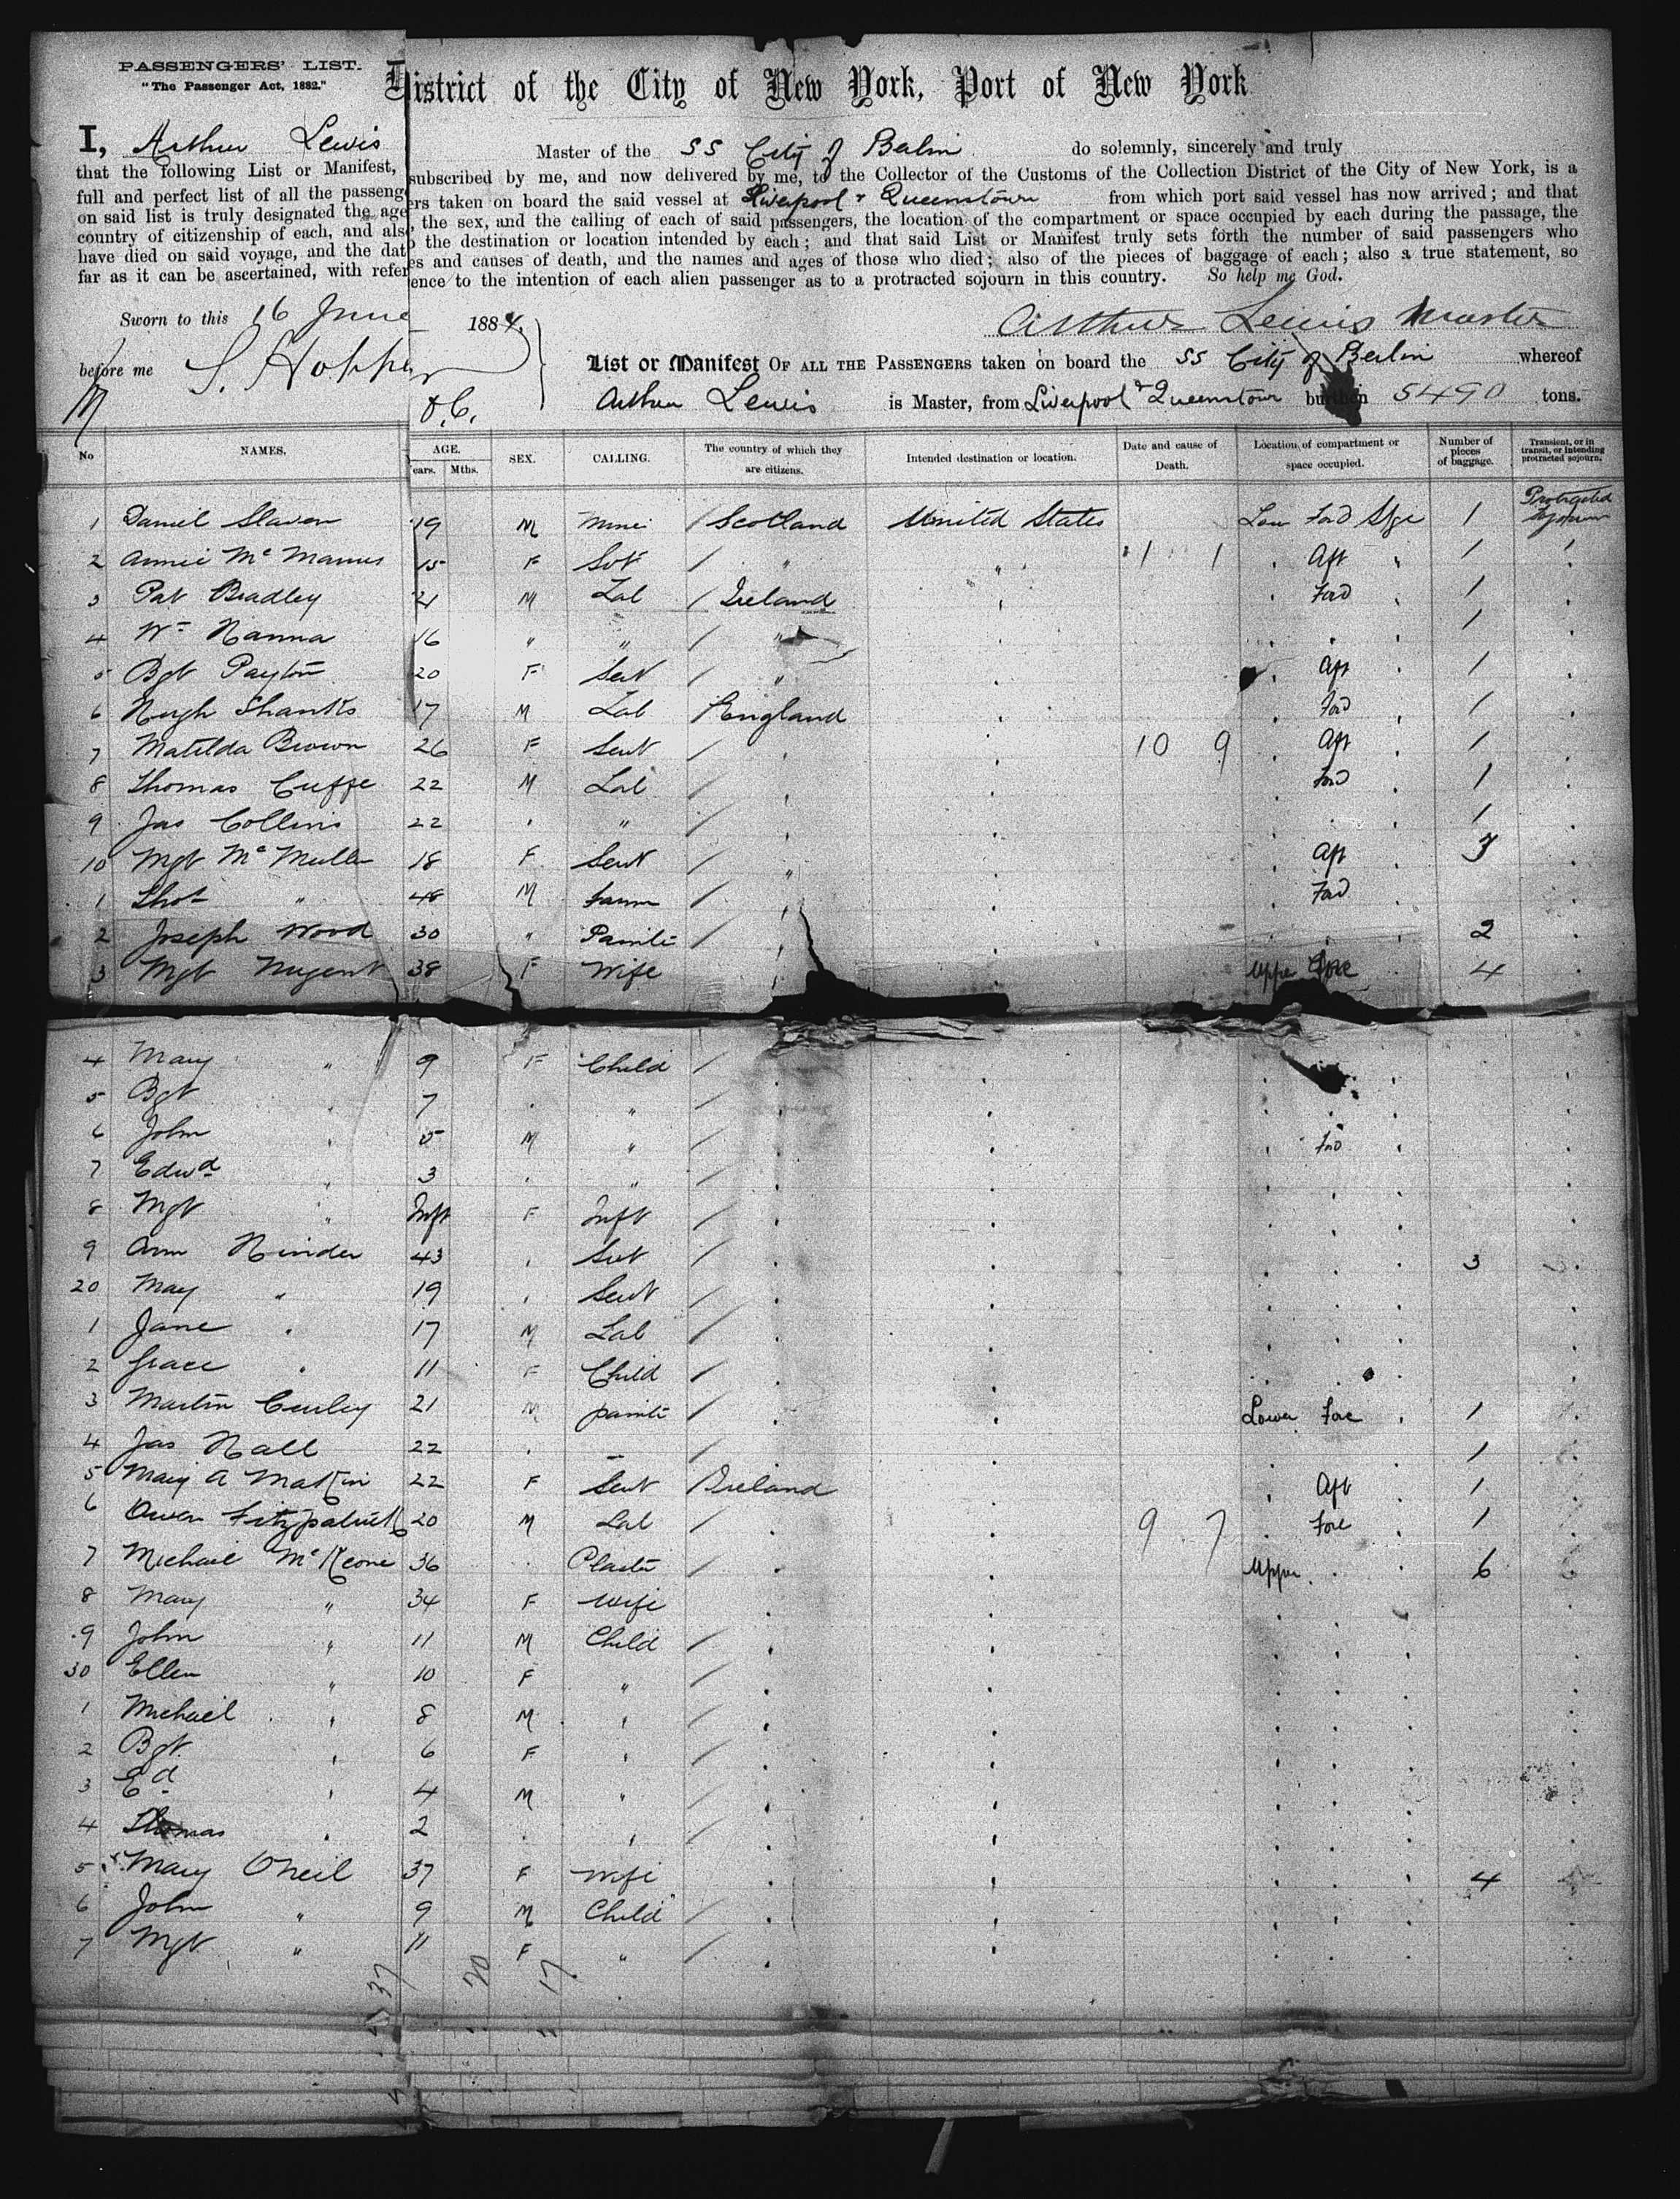 PASSENGERS' LIST.
"The Passenger Act, 1882."
District of the City of New York, Port of New York
I, Arthur Lewis Master of the SS City of Berlin do solemnly, sincerely and truly
that the following List or Manifest, subscribed by me, and now delivered by me, to the Collector of the Customs of the Collection District of the City of New York, is a
full and perfect list of all the passengers taken on board the said vessel at Liverpool & Queenstown from which port said vessel has now arrived; and that
on said list is truly designated the age the sex, and the calling of each of said passengers, the location of the compartment or space occupied by each during the passage, the
country of citizenship of each, and also the destination or location intended by each; and that said List or Manifest truly sets forth the number of said passengers who
have died on said voyage, and the dates and causes of death, and the names and ages of those who died; also of the pieces of baggage of each; also a true statement, so
far as it can be ascertained, with reference to the intention of each alien passenger as to a protracted sojourn in this country. So help me God.
Sworn to this 16 June 1884. Arthur Lewis Master
before me S. Hopper List or Manifest OF ALL THE PASSENGERS taken on board the SS City of Berlin whereof
D.C. Arthur Lewis is Master, from Liverpool & Queenstown burthen 5490 tons.
No NAMES. AGE. Years. Mths. SEX. CALLING. The country of which they are citizens. Intended destination or location. Date and cause of Death. Location of compartment or space occupied. Number of pieces of baggage. Transient, or in transit, or intending protracted sojourn.
1 Daniel Slaven 19 M Mine / Scotland United States Low Ford Stge 1 Protracted Sojourn
2 Annie McManus 15 F Svt / " " 1 1 Aft " 1
3 Pat Bradley 21 M Lab / Ireland Ford 1
4 Wm Hanna 16 " " / " 1
5 Bgt Payton 20 F Sevt / " Aft 1
6 Hugh Shanks 17 M Lab / England Ford 1
7 Matilda Brown 26 F Sevt / 10 9 Aft 1
8 Thomas Cuffe 22 M Lab / Ford 1
9 Jas Collins 22 " / 1
10 Mgt McMullen 18 F Sevt / " Aft 3
1 Thos " 48 M Farm / Ford
2 Joseph Wood 30 " Painte / 2
3 Mgt Nugent 38 F Wife Upper Fore 4
4 Mary " 9 F Child /
5 Bgt 7 " /
6 John 5 M " / Ford
7 Edwd 3 " /
8 Mgt Inft F Inft /
9 Ann Hinder 43 Svt / 3
20 May " 19 Sevt /
1 Jane 17 M Lab /
2 Grace 11 F Child /
3 Martin Curley 21 M painte / Lower Fore 1
4 Jas Hall 22 – / 1
5 Mary A Makin 22 F Sevt / Ireland Aft 1
6 Owen Fitzpatrick 20 M Lab / 9 7 Fore 1
7 Michael McKeone 36 Plaster / Upper 6
8 Mary " 34 F Wife
9 John " 11 M Child /
30 Ellen " 10 F " /
1 Michael 8 M /
2 Bgt 6 F /
3 Ed 4 M " /
4 Thomas 2 /
5 Mary O'Neil 37 F Wife 4
6 John " 9 M Child /
7 Mgt " 11 F " /
37 20 17